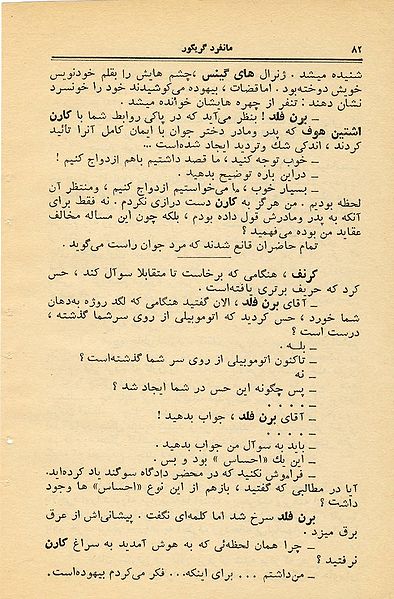 ۸۲
مانفرد گریگور
شنیده میشد . ژنرال های گینس ،چشم هایش را بقلم خودنویس
خویش دوخته‌بود . اماقضات ، بیهوده می‌کوشیدند خود را خونسرد
نشان دهند : تنفر از چهره هایشان خوانده میشد .
ــ برن فلد ! بنظر می‌آید که در پاکی روابط شما با کارن
اشتین هوف که پدر ومادر دختر جوان با ایمان کامل آنرا تائید
کردند ، اندکی شك وتردید ایجاد شده‌است ...
ــ خوب توجه کنید ، ما قصد داشتیم باهم ازدواج کنیم !
ــ دراین باره توضیح بدهید .
ــ بسیار خوب ، ما می‌خواستیم ازدواج کنیم ، ومنتظر آن
لحظه بودیم . من هرگز به کارن دست درازی نکردم . نه فقط برای
آنکه به پدر ومادرش قول داده بودم ، بلکه چون این مساله مخالف
عقاید من بوده می‌فهمید ؟
تمام حاضران قانع شدند که مرد جوان راست می‌گوید .
کرنف ، هنگامی که برخاست تا متقابلا سوآل کند ، حس
کرد که حریف برتری یافته‌است .
ــ آقای برن فلد ، الان گفتید هنگامی که لگد روژه به‌دهان
شما خورد ، حس کردید که اتوموبیلی از روی سرشما گذشته ،
درست است ؟
ــ بلــه .
ــ تاکنون اتوموبیلی از روی سر شما گذشته‌است ؟
ــ نه
ــ پس چگونه این حس در شما ایجاد شد ؟
ــ . . . .
ــ آقای برن فلد ، جواب بدهید !
ــ . . . .
ــ باید به سوآل من جواب بدهید .
ــ این یك «احساس » بود و بس .
ــ فراموش نکنید که در محضر دادگاه سوگند یاد کرده‌اید.
آیا در مطالبی که گفتید ، بازهم از این نوع «احساس» ها وجود
داشت ؟
برن فلد سرخ شد اما کلمه‌ای نگفت . پیشانی‌اش از عرق
برق میزد .
ــ چرا همان لحظه‌ئی که به هوش آمدید به سراغ کارن
نرفتید ؟
ــ من‌داشتم ... برای اینکه... فکر می‌کردم بیهوده‌است.